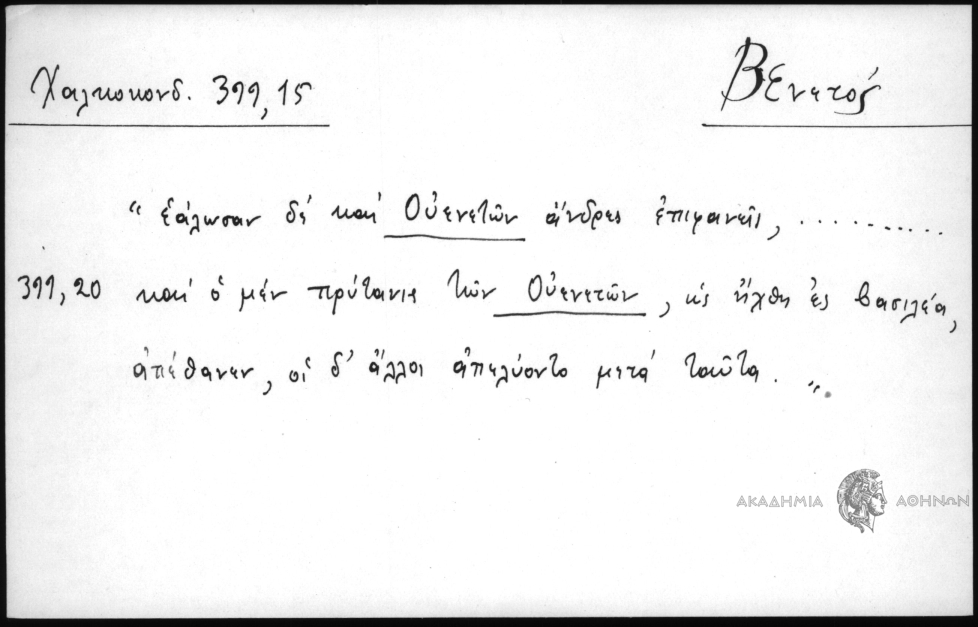 Χαλκοκονδ. 399,15
Βενετός
“ ἑάλωσαν δέ καί Οὐενετῶν ἄνδρες ἐπιφανεῖς, ...........
399,20 καί ὁ μέν πρύτανις τῶν Οὐενετῶν, ὡς ἤχθη ἐς βασιλέα,
ἀπέθανεν, οἱ δ' ἄλλοι ἀπελύοντο μετά ταῦτα. „.
ΑΚΑΔΗΜΙΑ ΑΘΗΝΩΝ